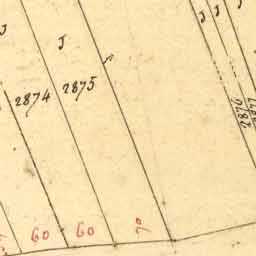 J
J
J
J
J
2874 2875
2876
60 60 70